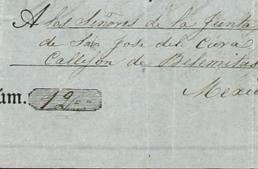 A los Señores de la Junta
de San Jose del Cura
Callejon de Betemitas
Mexi
úm. 1200